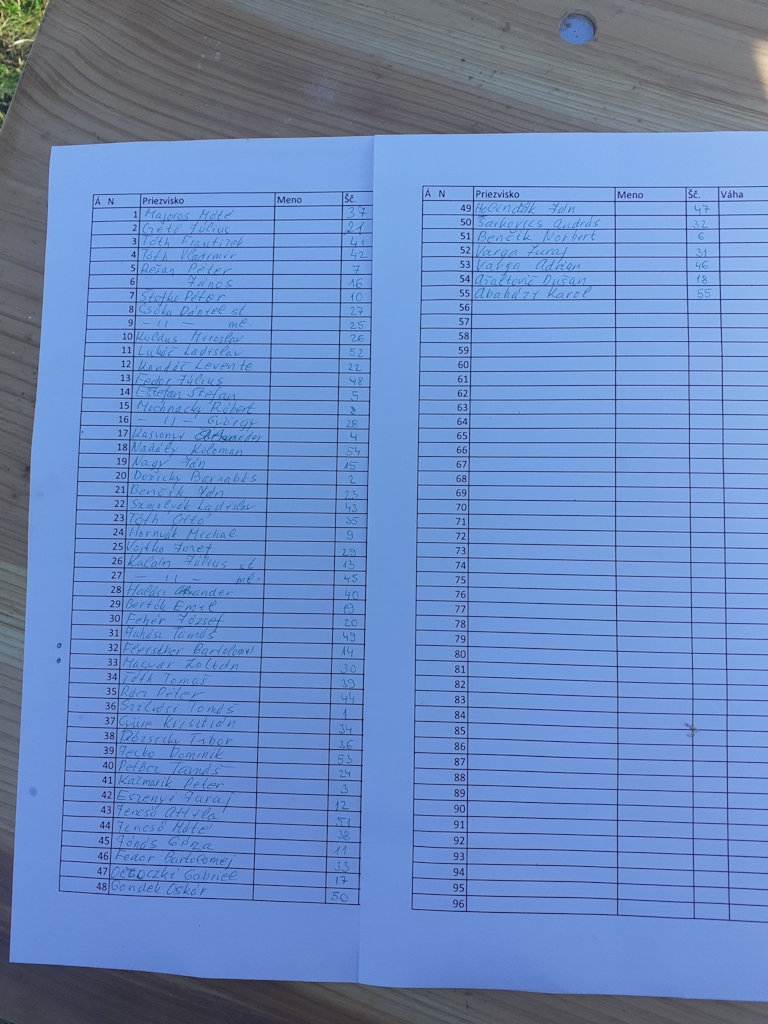 Á N Priezvisko Meno Šč.
1 Majoros Máté 37
2 Géti Július 21
3 Tóth František 41
4 Tóth Vladimír 42
5 Rešan Péter 7
6 János 16
7 Stojka Péter 10
8 Csóka Dániel st. 27
9 – 11 – ml. 25
10 Koldus Miroslav 26
11 Lukáč Ladislav 52
12 Levente 22
13 Fedor Július 48
14 Štefan 5
15 Michnacki Róbert 8
16 – 11 – György 28
17 4
18 Nadály Koloman 54
19 Nagy Ján 15
20 Barnabás 2
21 Benčík Ján 23
22 Ladislav 43
23 Tóth Ottó 35
24 Hornyák Michal 9
25 Vojtko Jozef 29
26 Július st. 13
27 – 11 – ml. 45
28 40
29 Berták Emil 19
30 Fehér József 20
31 Juhász Tamás 49
32 Fleischer Bartolomej 14
33 Magyar Zoltán 30
34 Tóth Tomáš 39
35 Rácz Péter 44
36 Szilvási Tomáš 1
37 Krisztián 34
38 Tibor 36
39 Jecko Dominik 53
40 Tamáš 24
41 Kačmarik Péter 3
42 Eszenyi Juraj 12
43 Jencső Attila 51
44 Jencső Máté 38
45 Jónás Géza 11
46 Fedor Bartolomej 33
47 Gabriel 17
48 Gondek Oskár 50
Á N Priezvisko Meno Šč. Váha
49 Holendák Ján 47
50 Šarkovics András 32
51 Benčík Norbert 6
52 Varga Juraj 31
53 Varga Adrian 46
54 Dušan 18
55 Abaházi Karol 55
56
57
58
59
60
61
62
63
64
65
66
67
68
69
70
71
72
73
74
75
76
77
78
79
80
81
82
83
84
85
86
87
88
89
90
91
92
93
94
95
96